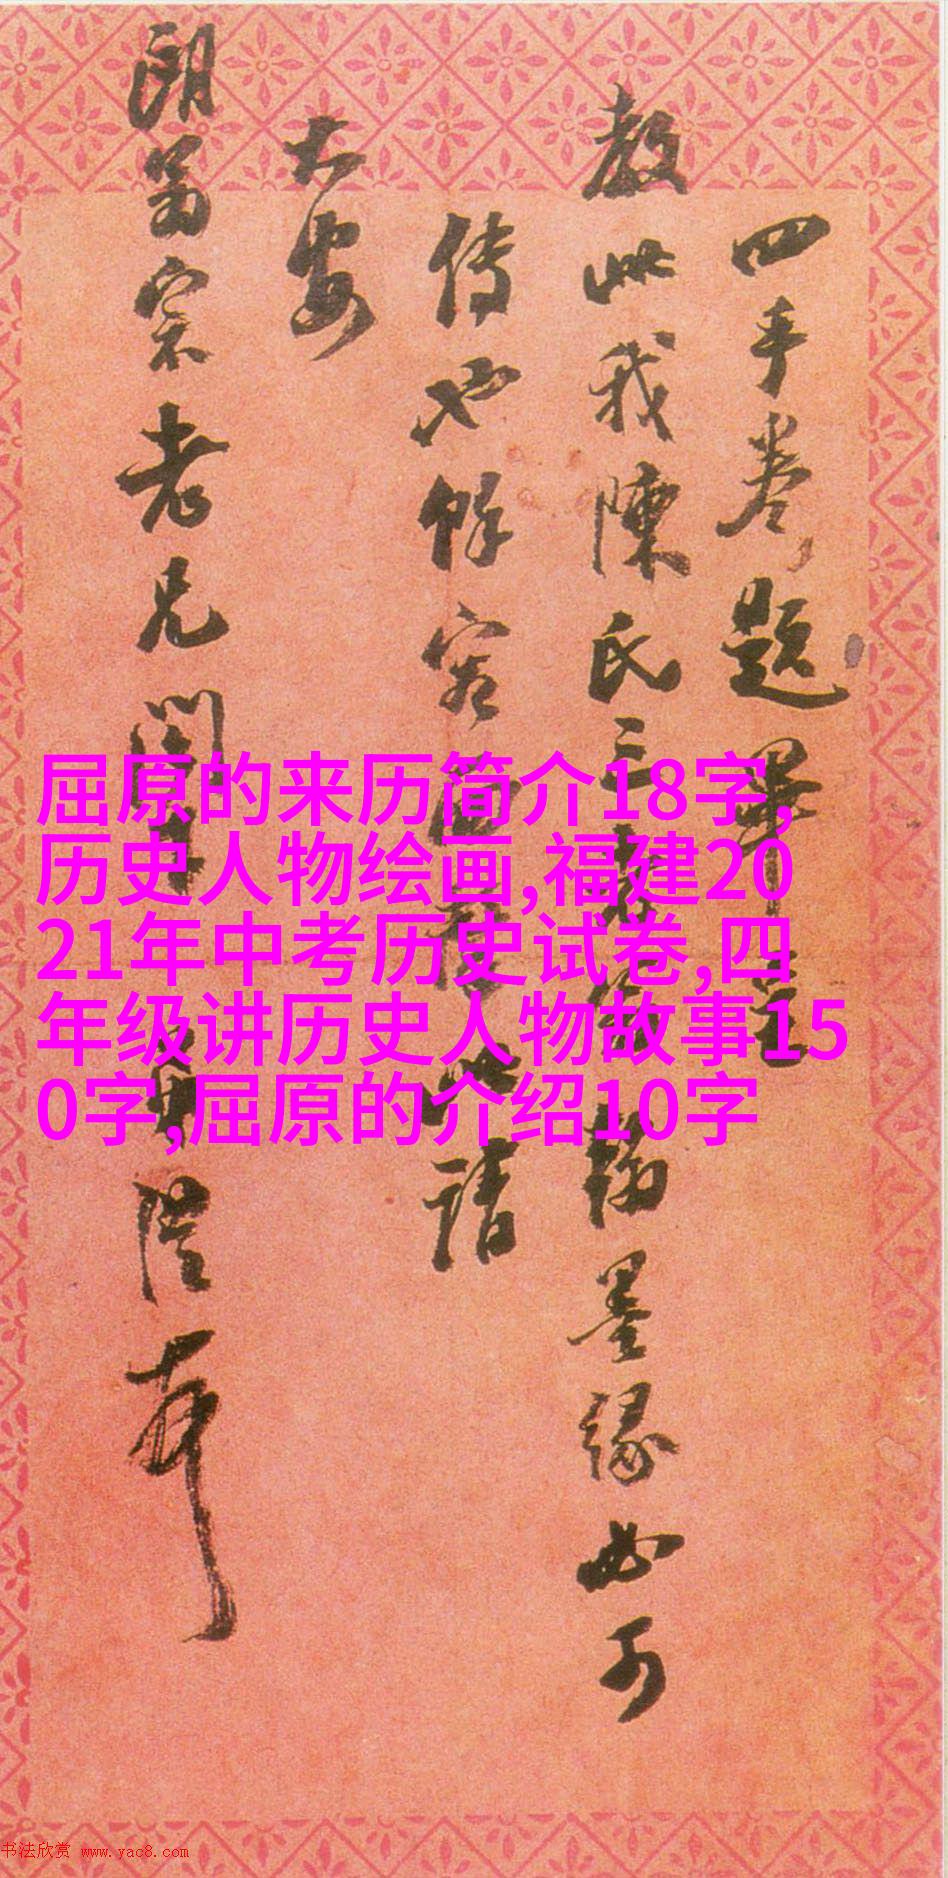 四手卷題畢呈
教此我陳氏三
翰墨緣也可
傳也餘容面
此請
大安
朗翁宗老兄閣下
屈原的来历简介18字,
历史人物绘画,福建20
21年中考历史试卷,四
年级讲历史人物故事15
0字,屈原的介绍10字
书法欣赏 www.yac8.com